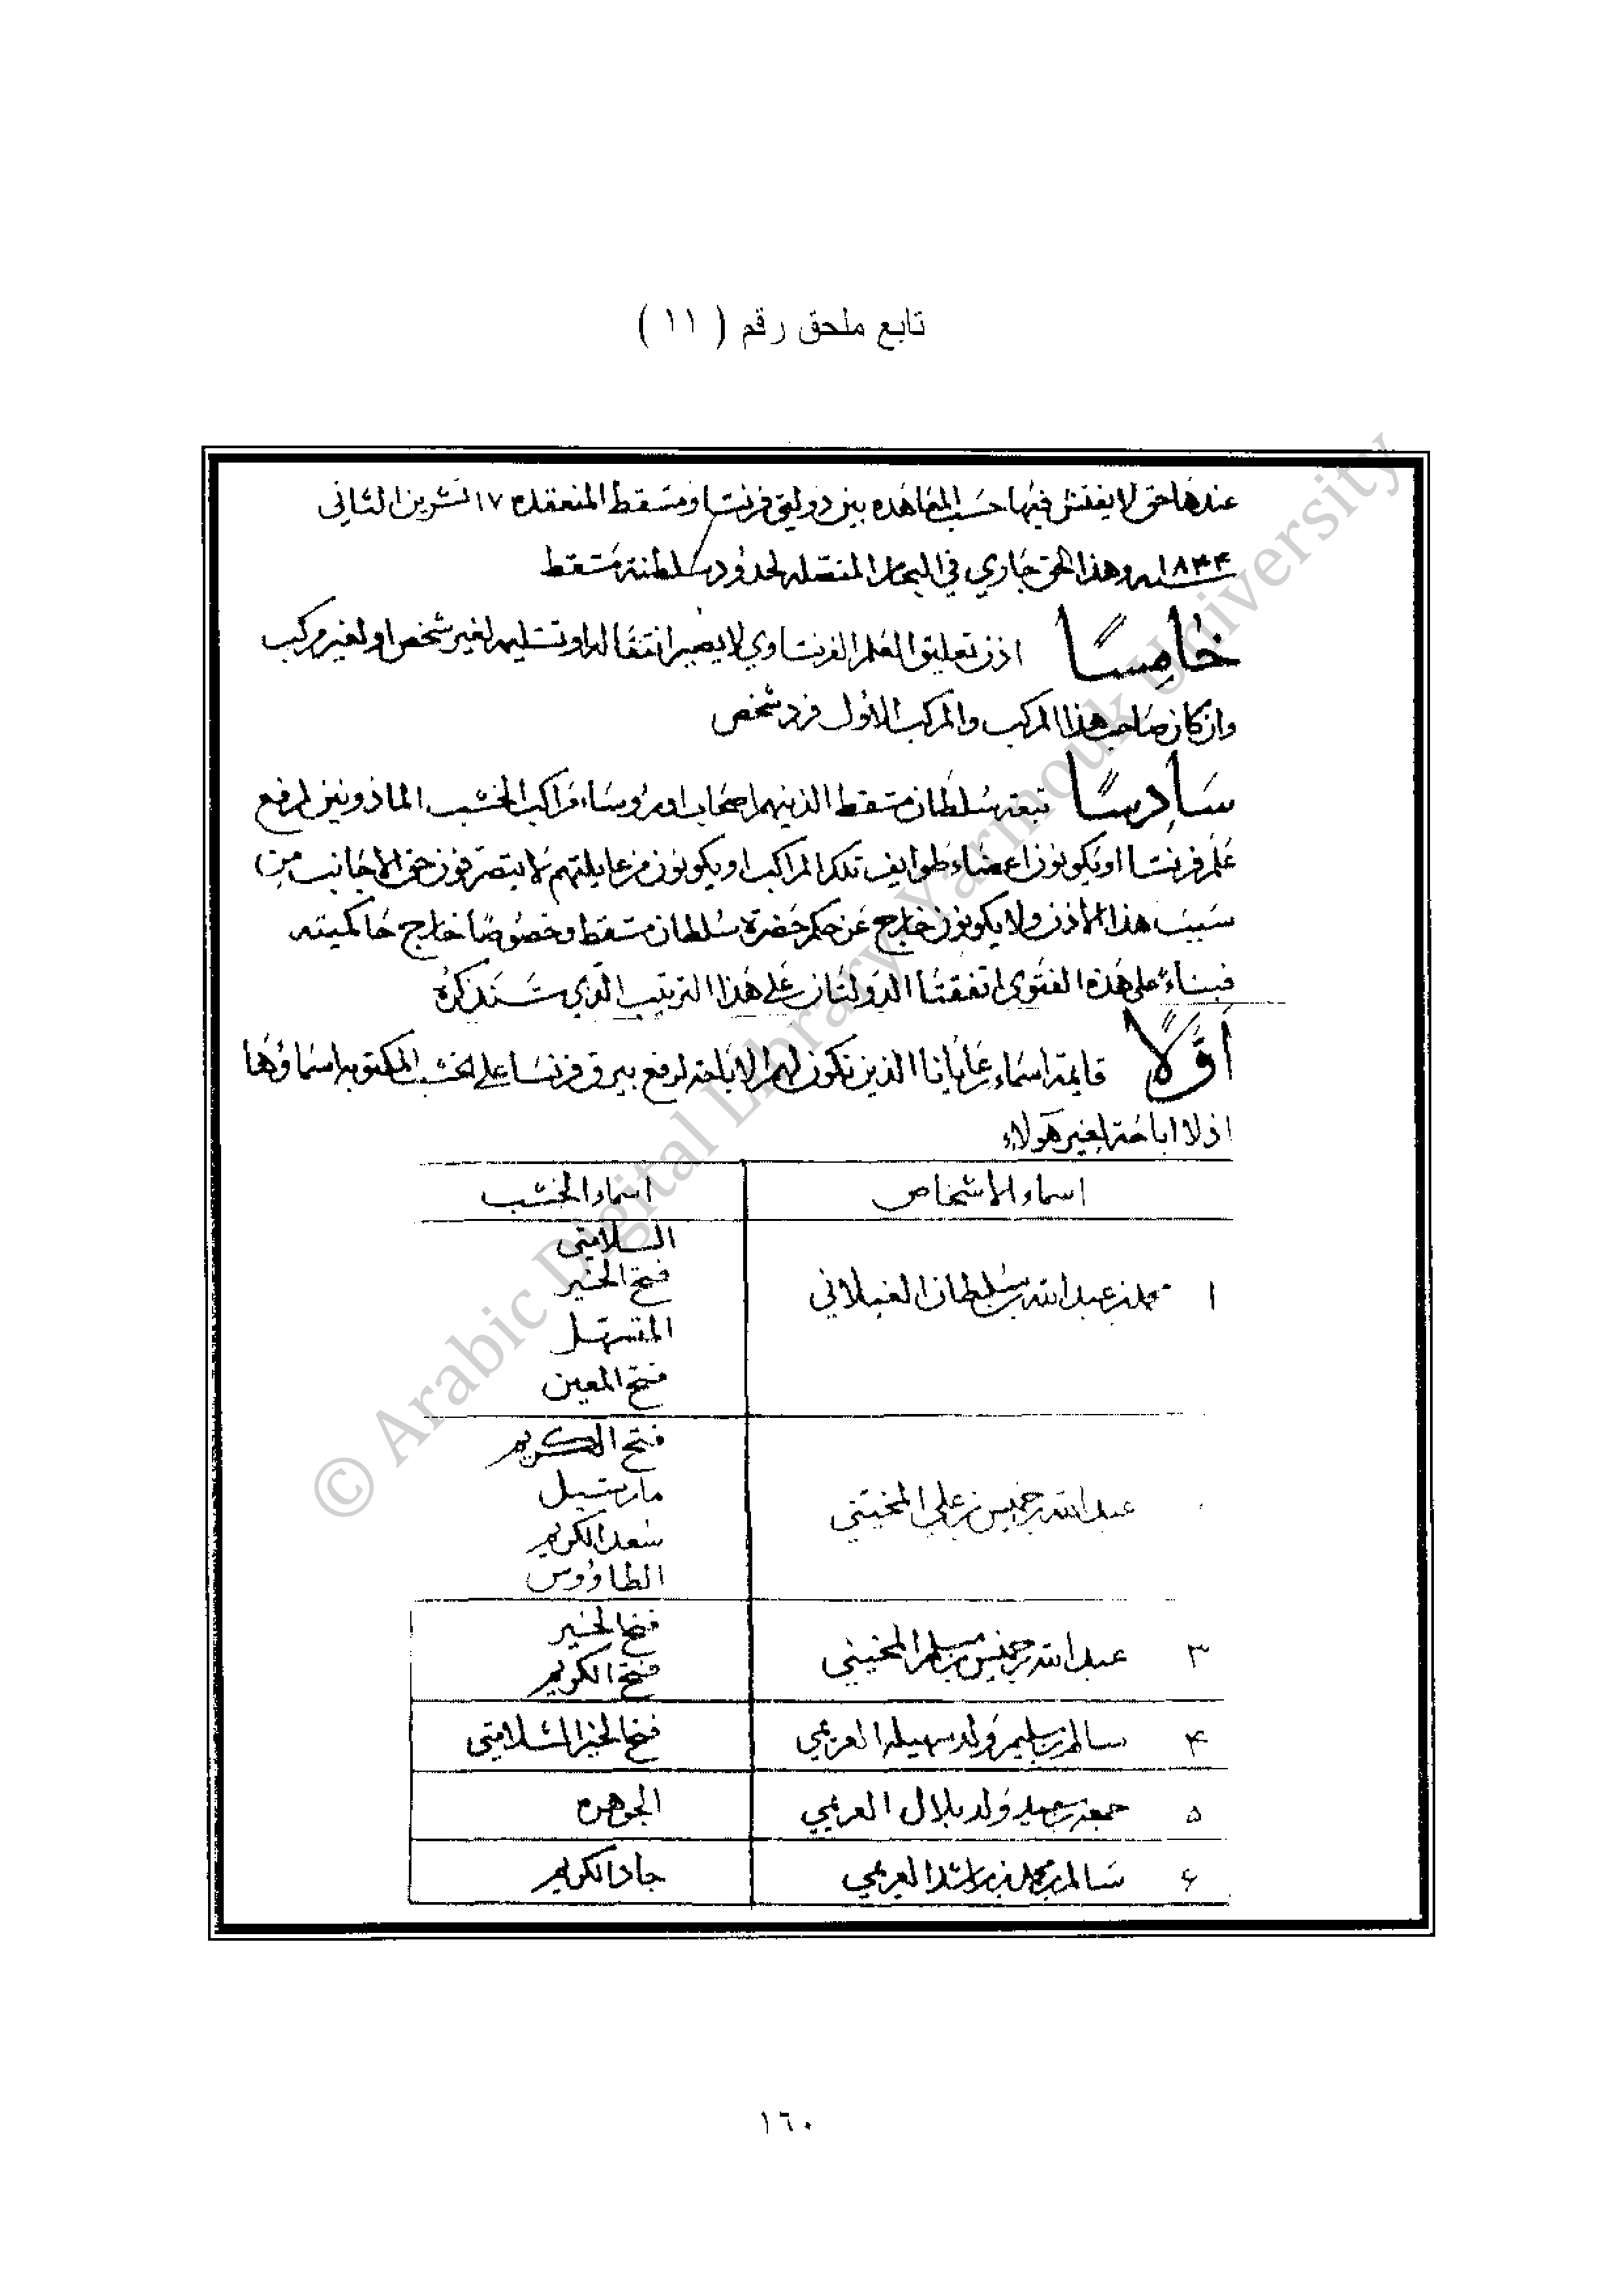 تابع ملحق رقم ( ١١ )
عندها حق لا يفتش فيها حسب المعاهده بين دولتي فرنسا ومسقط المنعقده ١٧ تشرين الثاني
سنه ١٨٤٤ وهذا الحق جاري في البحار المتصله لحدود سلطنة مسقط
خامسًا اذن تعليق العلم الفرنساوي لا يصير انتقاله او تسليمه لغير شخص او لغير مركب
وان كان صاحب هذا المركب والمركب الاول فرد شخص
سادسًا تبعة سلطان مسقط الذينهم اصحاب او رؤساء مراكب الخشب الماذونين لرفع
علم فرنسا او يكونون اعضاء طوايف تلك المراكب او يكونون من عايلتهم لا يتصرفون حق الاجانب من
سبب هذا الاذن ولا يكونون خارج عن حكم حضرة سلطان مسقط وخصوصًا خارج حاكميته
فبناءً على هذه الفتوى اتفقتا الدولتان على هذا الترتيب الذي ستذكره
اوّلًا قايمة اسماء رعايانا الذين تكون لهم الاباحة لرفع بيرق فرنسا على الخشب المكتوبه اسماؤها
اذ لا اباحة لغير هولاء
اسماء الاشخاص اسماء الخشب
السلامتي
فتح الخير
١ محمد بن عبدالله بن سلطان الغيلاني
المتسهل
فتح المعين
فتح الكريم
مارسيل
عبدالله بن خميس بن علي المخيني
سعد الكريم
الطاووس
فتح الخير
٣ عبدالله بن خميس بن مسلم المخيني
فتح الكريم
٤ سالم بن سليم ولد سهيله العريمي فتح الخير السلامتي
٥ جمعة بن سعيد ولد بلال العريمي الجوهره
٦ سالم بن محمد بن راشد العريمي جاد الكريم
١٦٠
© Arabic Digital Library Yarmouk University